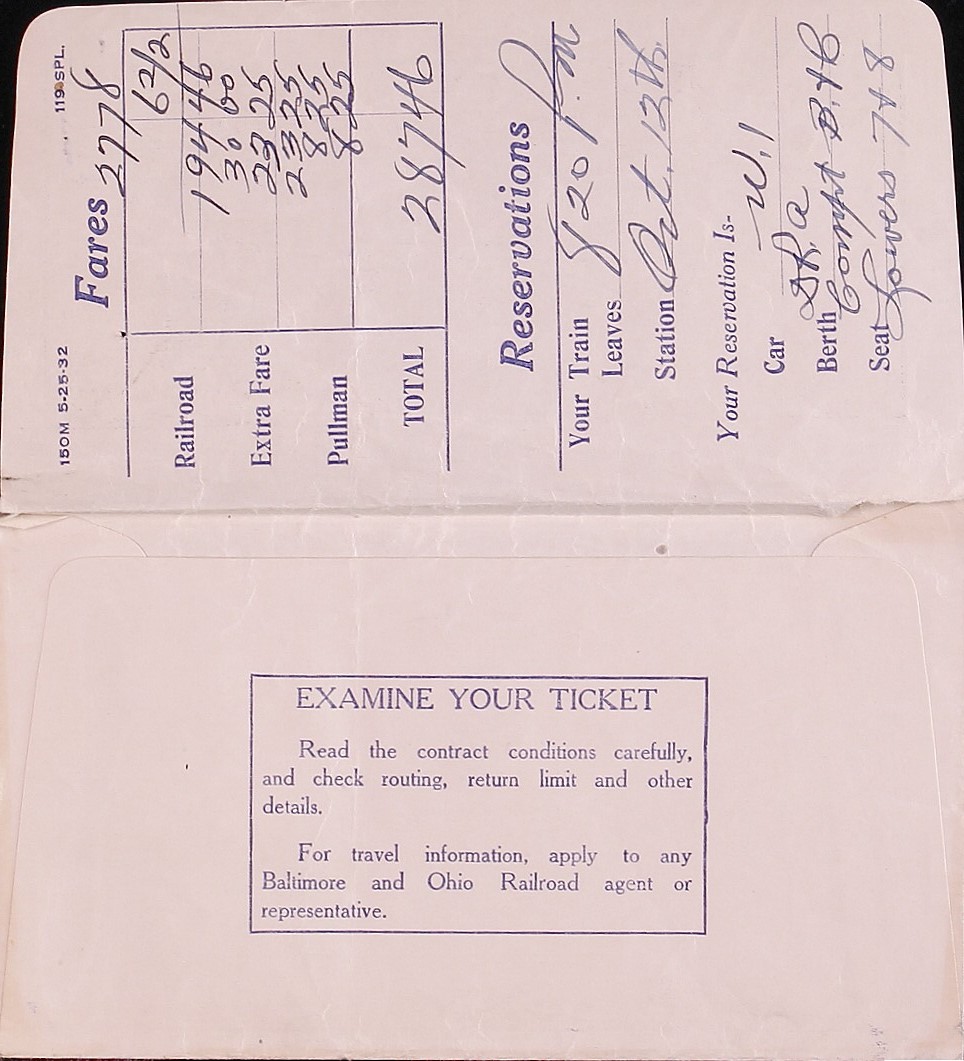 150M 5-25-32 119 SPL.
Fares 2778
6 2/2
Railroad 194 46
30 60
Extra Fare 23 25
23 25
Pullman 8 25
8 25
TOTAL 287 46
Reservations
Your Train
Leaves 8 20 P.M
Station Oct. 13th.
Your Reservation Is-
Car W.1
D.R. a
Berth Compt B.+C
Seat Lowers 7+8
EXAMINE YOUR TICKET
Read the contract conditions carefully,
and check routing, return limit and other
details.
For travel information, apply to any
Baltimore and Ohio Railroad agent or
representative.